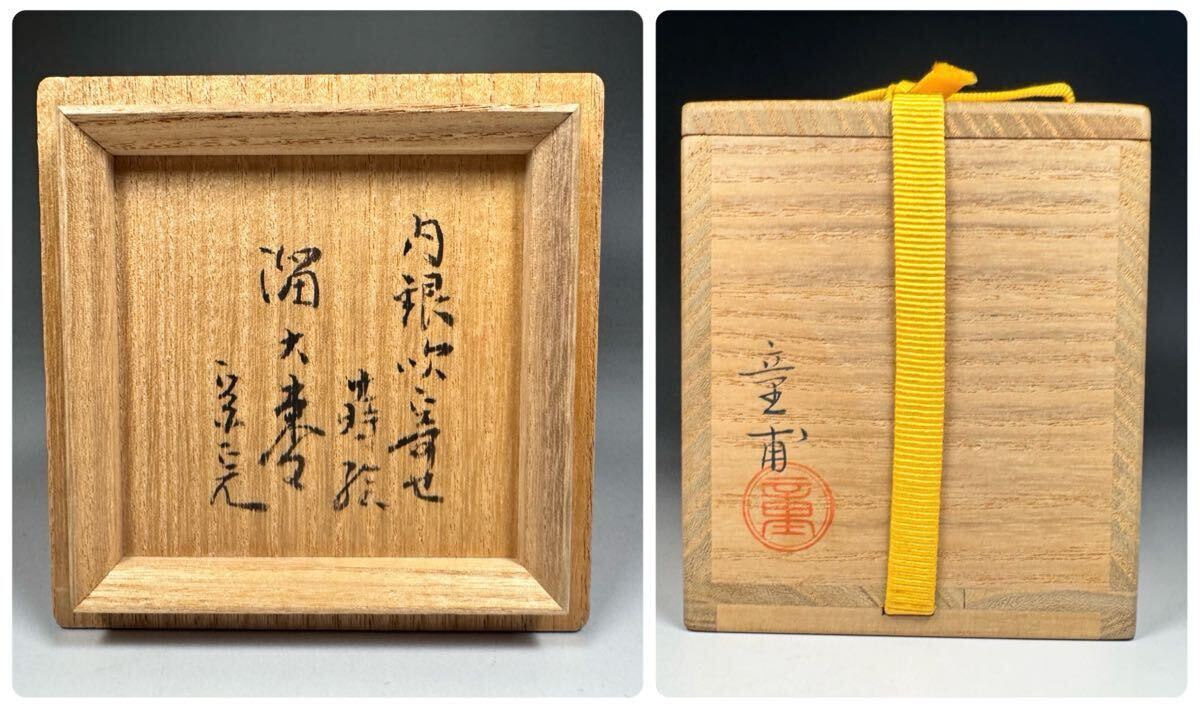 内銀吹寄せ
蒔絵
溜大棗
童甫